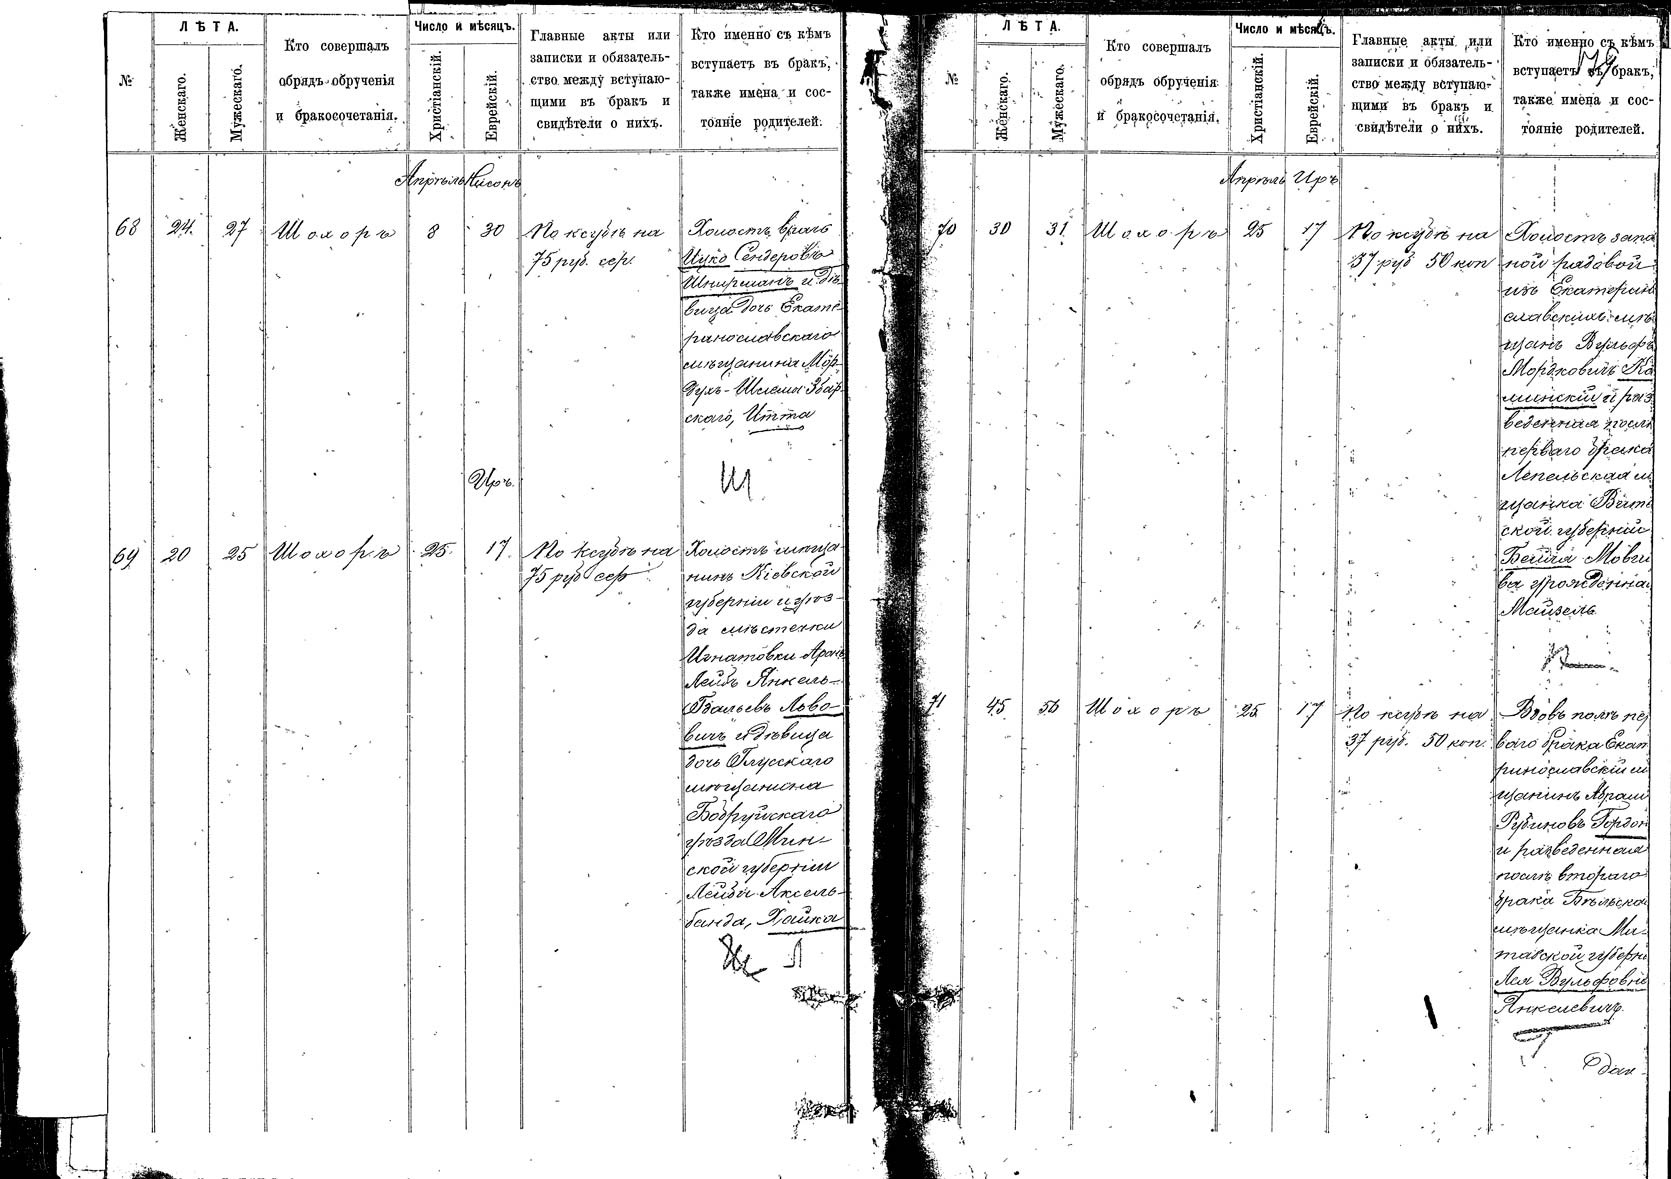 №
ЛѢТА.
Женскаго.
Мужескаго.
Кто совершалъ
обрядъ обрученія
и бракосочетанія.
Число и мѣсяцъ.
Христіанскій.
Еврейскій.
Главные акты или
записки и обязатель-
ство между вступаю-
щими въ бракъ и
свидѣтели о нихъ.
Кто именно съ кѣмъ
вступаетъ въ бракъ,
также имена и сос-
тояніе родителей.
Апрѣль Нисонъ
68 24. 27 Шохоръ 8 30
По ксубѣ на
75 руб. сер.
Холостъ врачъ
Ицко Сендеровъ
Шнирманъ и дѣ-
вица дочь Екате-
ринославскаго
мѣщанина Мор-
духъ-Шлема Збар-
скаго, Итта
Иръ.
Ш
69 20 25 Шохоръ 25 17.
По ксубѣ на
75 руб сер
Холостъ мѣща-
нинъ Кіевской
губерніи и уѣз-
да мѣстечки
Игнатовки Аронъ
Лейбъ Янкель-
Бзальевъ Льво-
вичъ и дѣвица
дочь Глусскаго
мѣщанина
Бобруйскаго
уѣзда Мин-
ской губерніи
Лейбы Аксель-
банда, Хайка
Л
№
ЛѢТА.
Женскаго.
Мужескаго.
Кто совершалъ
обрядъ обрученія
и бракосочетанія.
Число и мѣсяцъ.
Христіанскій.
Еврейскій.
Главные акты или
записки и обязатель-
ство между вступаю-
щими въ бракъ и
свидѣтели о нихъ.
Кто именно съ кѣмъ
вступаетъ въ бракъ,
также имена и сос-
тояніе родителей.
Апрѣль Иръ
70 30 31 Шохоръ 25 17
По ксубѣ на
37 руб 50 коп
Холостъ запа
ной рядовой
изъ Екатерин
славскихъ мѣ
щанъ Вульфъ
Мордковичъ Ка
минскій и раз
веденная послѣ
перваго брака
Лепельская м
щанка Вите
ской губерніи
Бейла Мовш
ва урожденна
Майзель
71 45 56 Шохоръ 25 17
По ксубѣ на
37 руб. 50 коп.
Вдовъ послѣ пе
ваго брака Екат
ринославскій м
щанинъ Абрам
Рубиновъ Гордон
и разведенная
послѣ втораго
брака Бѣльска
мѣщанка Ми-
тавской губерн
Лея Вульфовн
Янкелевичъ
Г